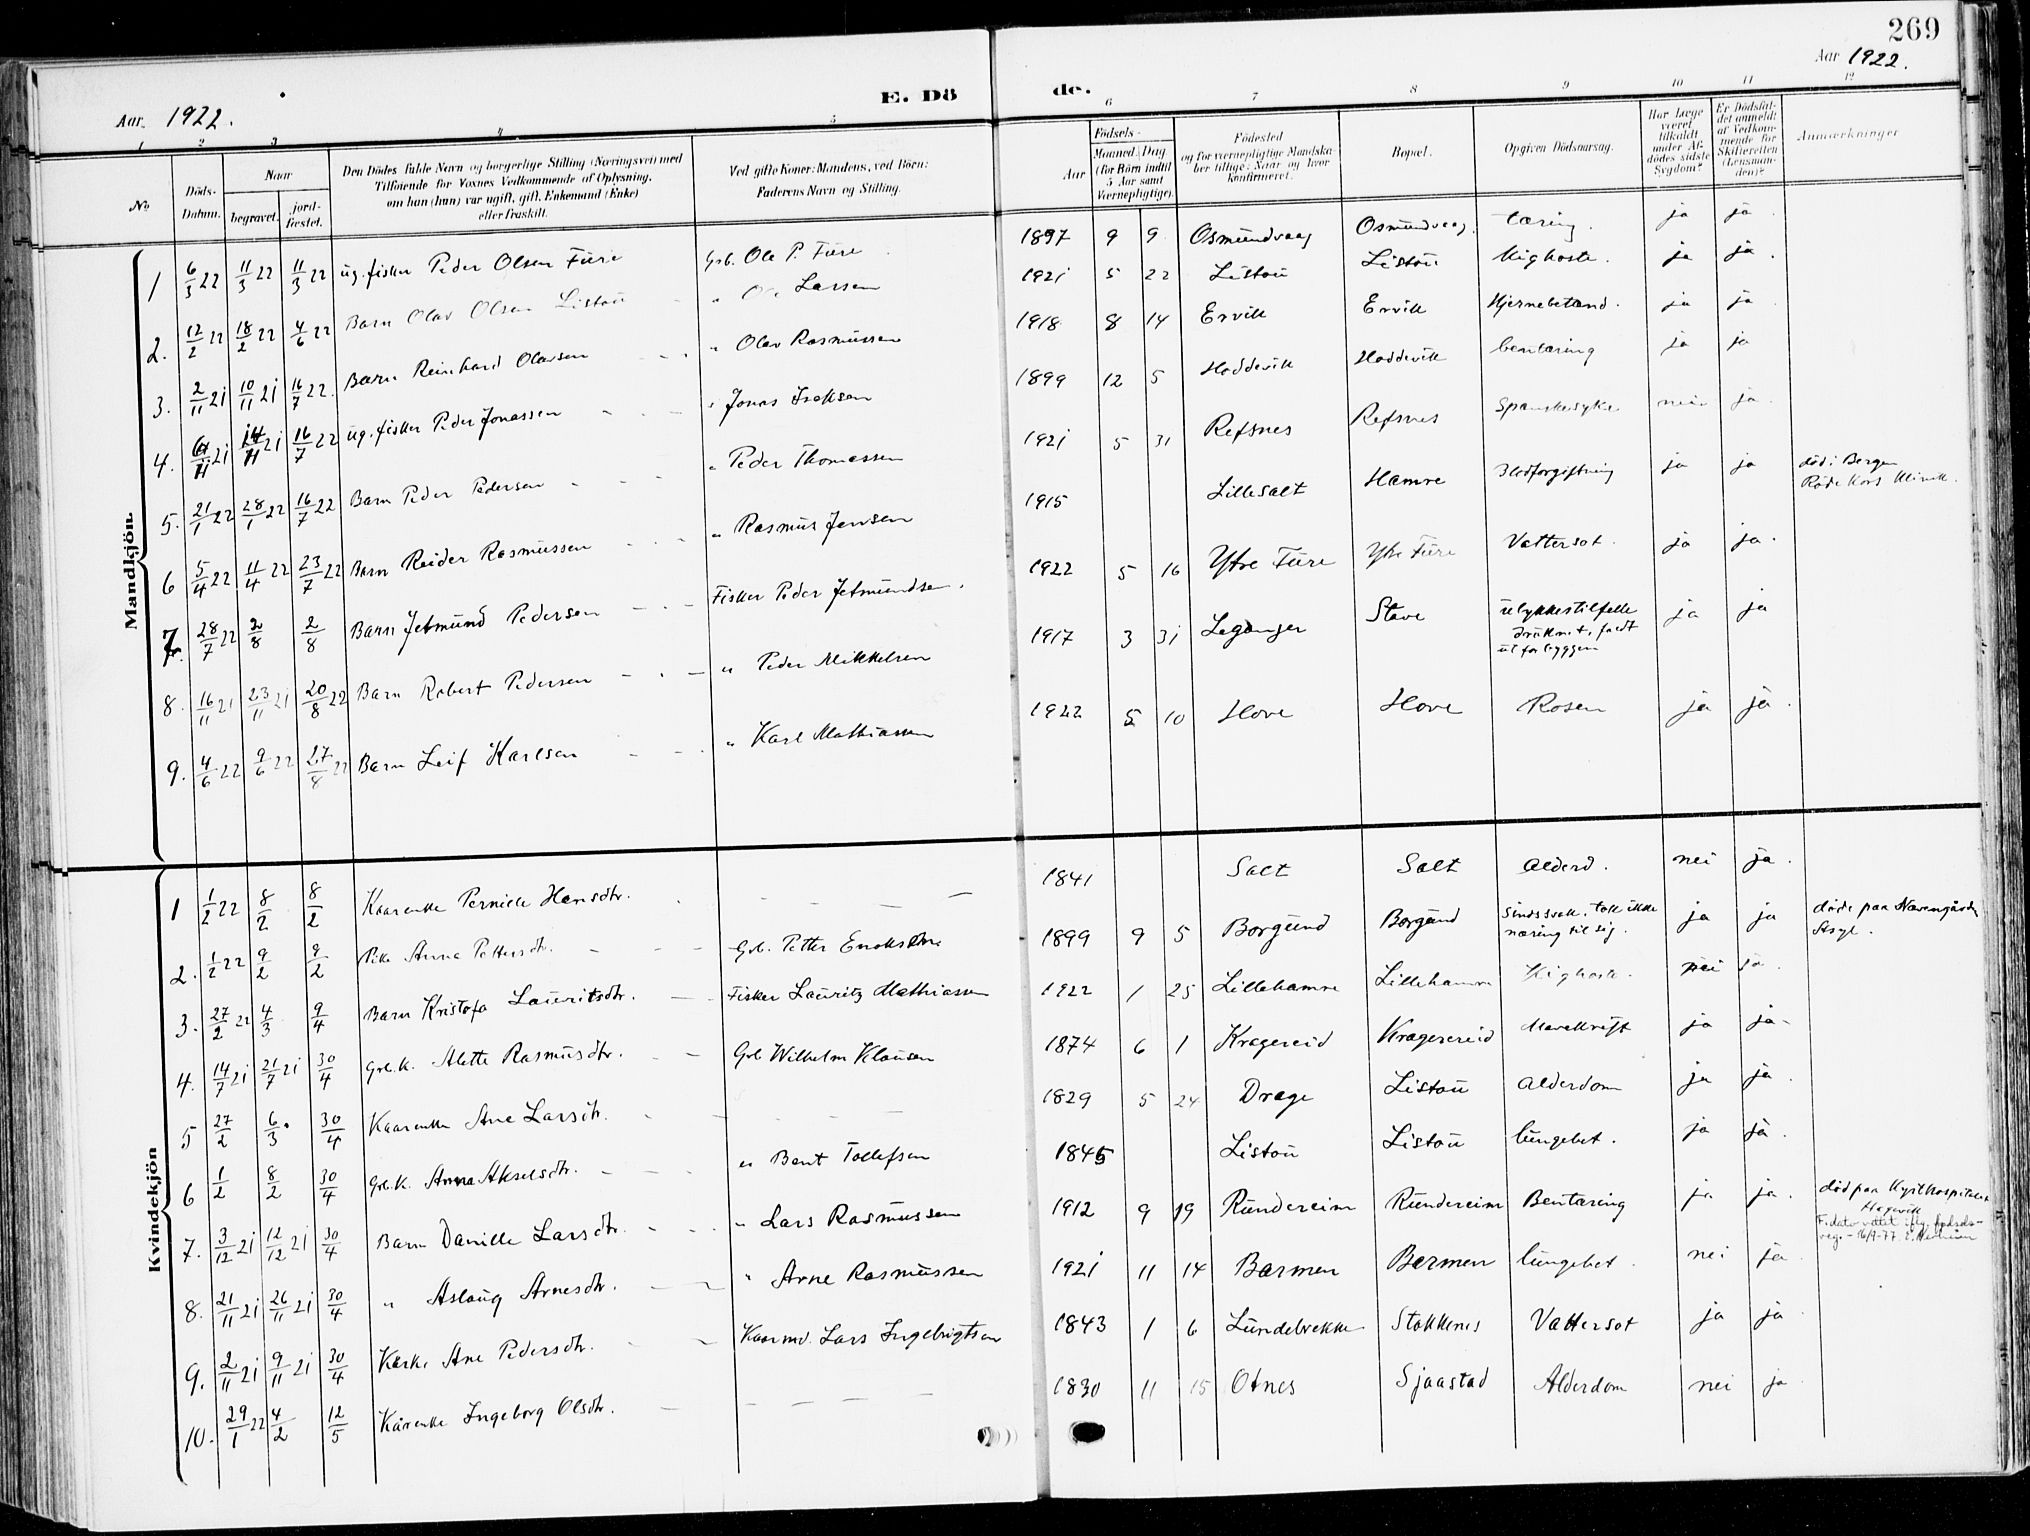 269
Aar 1922.
Aar 1922.
E. Dö
de.
1 2 3 4 5 6 7 8 9 10 11 12
No
Döds-Datum.
Naar
begravet.
jord-fæstet.
Den Dödes fulde Navn og borgerlige Stilling (Næringsvei) med
Tilföiende for Voxnes Vedkommende af Oplysning,
om han (hun) var ugift, gift, Enkemand (Enke)
eller fraskilt.
Ved gifte Koner: Mandens, ved Börn:
Faderens Navn og Stilling.
Födsels-
Aar
Maaned. Dag
(for Börn indtil
5 Aar samt
Værnepligtige).
Födested
og for værnepligtige Mandska-
ber tillige: Naar og hvor
konfirmeret.
Bopæl.
Opgiven Dödsaarsag.
Har Læge
været
tilkaldt
under Af-
dödes sidste
Sygdom?
Er Dödsfal-
det anmeldt
af Vedkom-
mende for
Skifteretten
(Lensman-
den)?
Anmærkninger
Mandkjön.
1 6/3 22 11/3 22 11/3 22 ug. fisker Peder Olsen Füre Grb. Ole P. Füre 1897 9 9 Osmundvaag Osmundvaag. tæring. ja ja.
2. 12/2 22 18/2 22 4/6 22 Barn Olav Olsen Listou " Larsen 1921 5 22 Listou Listou Kighoste. ja ja.
3. 2/11 21 10/11 21 16/7 22. Barn Reinhard Olavsen " Olav Rasmussen 1918 8 14 Ervik Ervik Hjernebetænd. ja ja
4. 6/11 21 14/11 21 16/7 22 ug. fisker Peder Jonassen " Jonas Isaksen 1899 12 5 Hoddevik Hoddevik bentæring ja ja
5. 21/1 22 28/1 22 16/7 22 Barn Peder Pedersen " Peder Thomassen 1921 5 31 Refsnes Refsnes Spanskesyke nei ja.
6 5/4 22 11/4 22 23/7 22 Barn Reider Rasmussen " Rasmus Jensen 1915 Lillesalt Hamre Blodforgiftning ja ja död i Bergen
Röde Kors Klinik.
7. 28/7 22 2/8 2/8 Barn Jetmund Pedersen Fisker Peder Jetmundsen. 1922 5 16 Ytre Füre Ytre Füre Vattersot. ja ja.
8. 16/11 21 23/11 21 20/8 22 Barn Robert Pedersen " Peder Mikkelsen 1917 3 31 Leganger Stave ulykkestilfelle
druknet, faldt
ut for bryggen ja ja
9. 4/6 22 9/6 22 27/8 22 Barn Leif Karlsen " Karl Mathiassen 1922 5 10 Hove Hove Rosen ja ja.
Kvindekjön
1 1/2 22 8/2 8/2 Kaarenke Pernille Hansdtr. 1841 Salt Salt Alderd. nei ja.
2. 1/2 22 9/2 9/2 Pike Anna Pettersdtr. Grb. Petter 1899 9 5 Borgund Borgund Sindssvak, tok ikke
næring til sig. ja ja döde paa Neevengården
Asyl.
3. 27/2 22 4/3 9/4 Barn Kristofa Lauritsdtr. Fisker Lauritz Mathiassen 1922 1 25 Lillehamre Lillehamre Kighoste. nei ja.
4. 14/7 21 21/7 21 30/4 Grb.K. Alette Rasmusdtr. Grb Wilhelm Klausen 1874 6 1 Kragereid Kragereid Mavekræft ja ja
5 27/2 6/3 30/4 Kaarenke Ane Larsdtr. 1829 5 24 Drage Listou Alderdom ja ja.
6 1/2 8/2 30/4 Grb.K. Anna Akselsdtr. " Bent Tollefsen 1845 Listou Listou lungebet. ja ja.
7. 3/12 21 12/12 21 30/4 Barn Danielle Larsdtr. " Lars Rasmussen 1912 9 19 Rundereim Rundereim Bentæring ja ja. död paa Kysthospitalet
Hagevik
F. dato rettet iflg. fødsels-
reg. - 16/9-77.
8. 21/11 21 26/11 21 30/4 " Aslaug Arnesdtr. " Arne Rasmussen 1921 11 14 Barmen Barmen lungebet. nei ja
9. 2/11 21 9/11 21 30/4 Kaarke Ane Pedersdtr. Kaarmd. Lars Ingebrigtsen 1843 1 6 Lundebrekke Stokknes Vattersot ja ja
10. 29/1 22 4/2 12/5 Kårenke Ingeborg Olsdtr. 1830 11 15 Otnes Sjaastad Alderdom nei ja